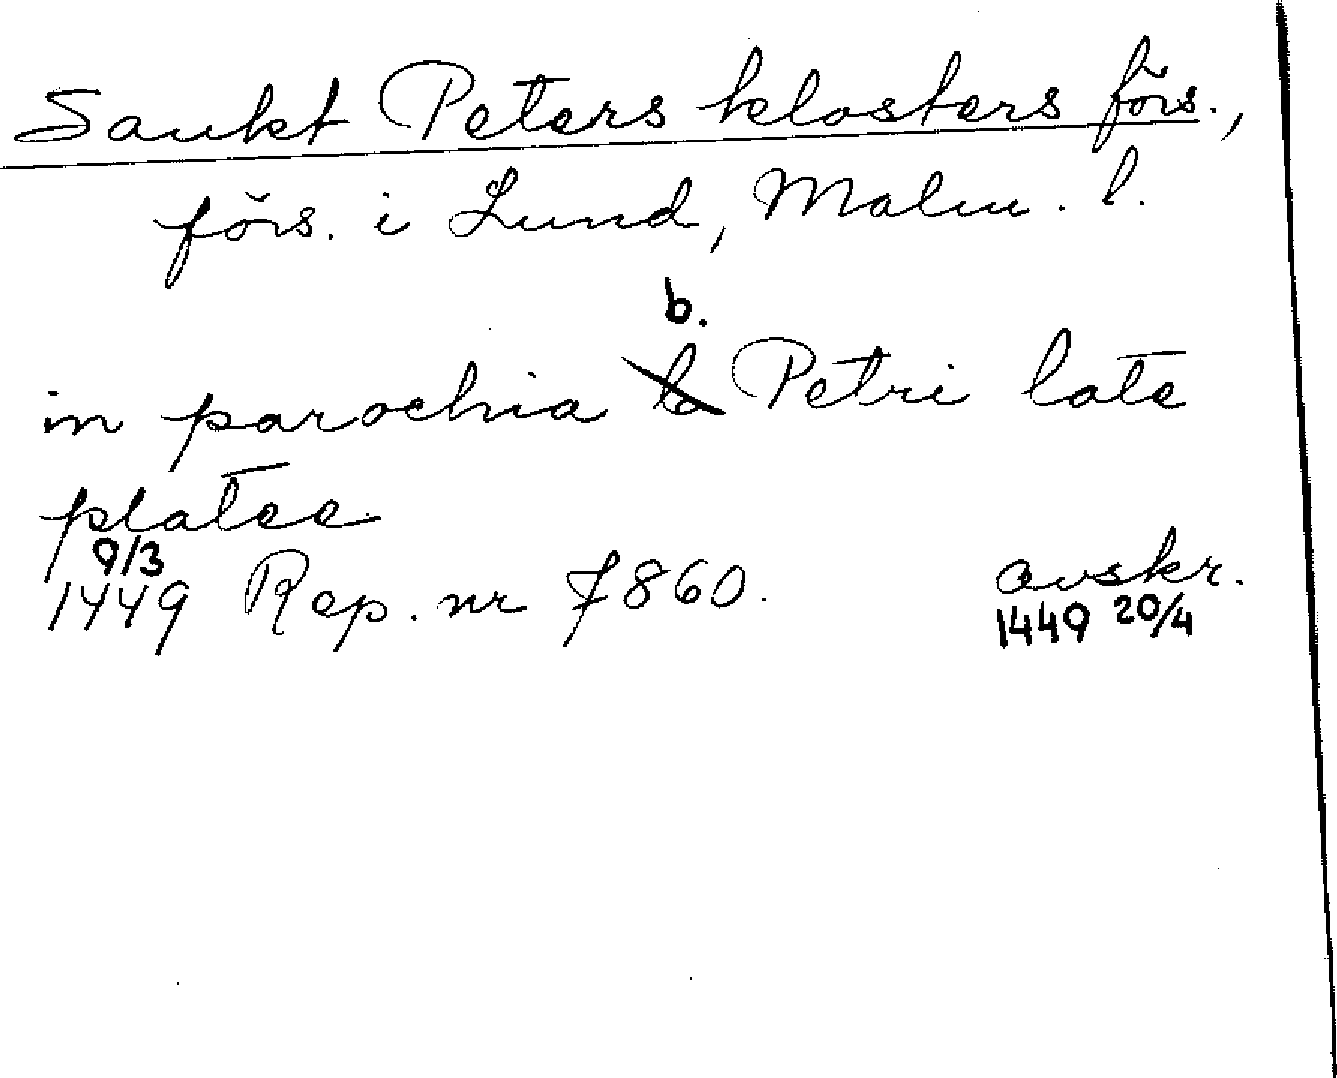 Sankt Peters klosters förs.,
förs. i Lund, Malm. l.
b.
in parochia b Petri late
platee
9/3
1449 Rep. nr 7860. avskr.
1449 20/4